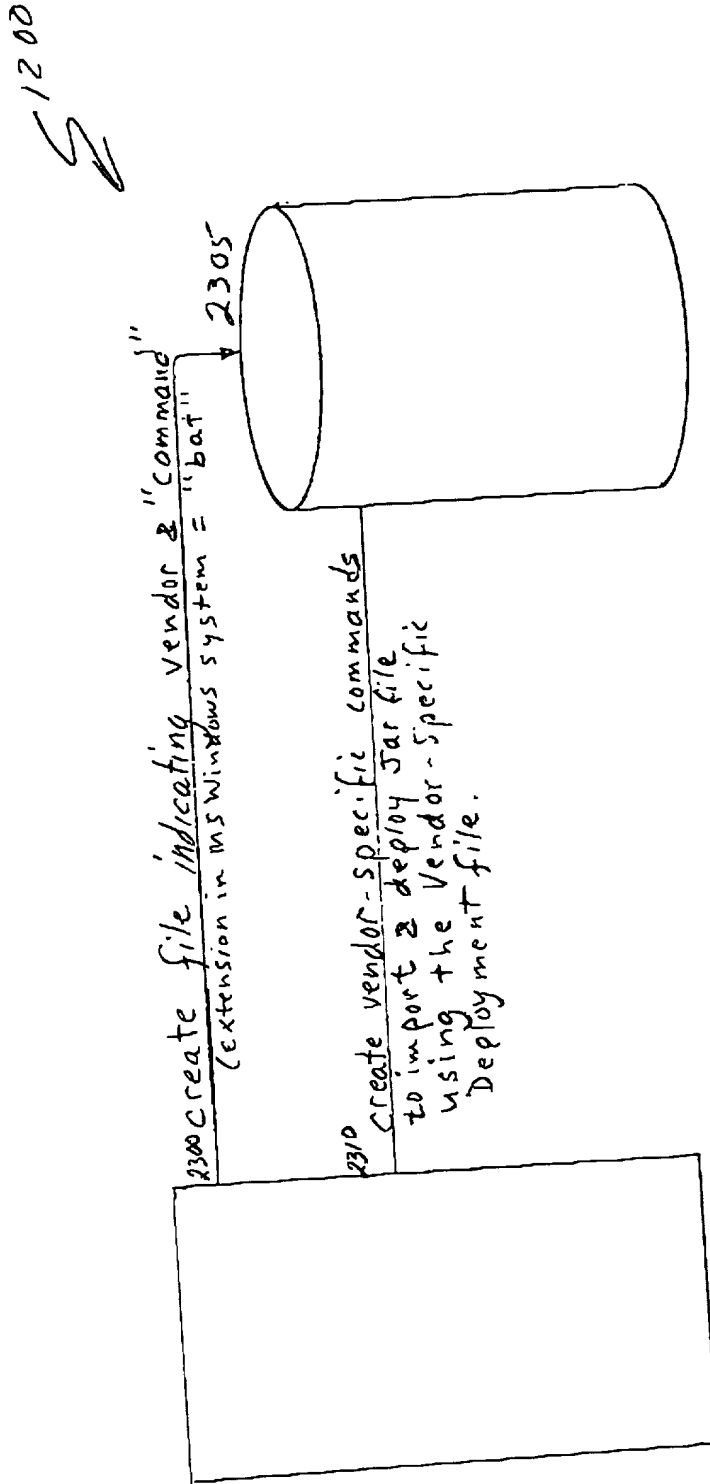 1200
2300 create file indicating vendor & "command"
(extension in MS Windows system = "bat"
2305
2310 create vendor-specific commands
to import & deploy Jar file
using the Vendor-Specific
Deployment file.